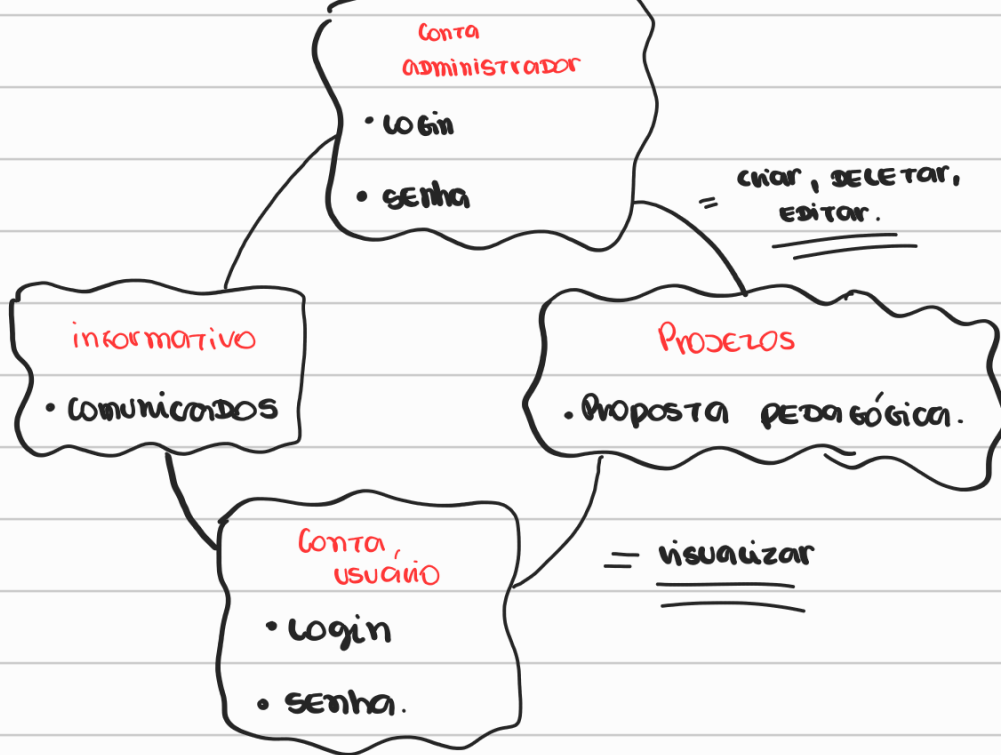 Conta
administrador
• Login
• senha
= criar, deletar,
editar.
informativo
• comunicados
Projetos
• Proposta pedagógica.
Conta
usuário
• Login
• senha.
= visualizar